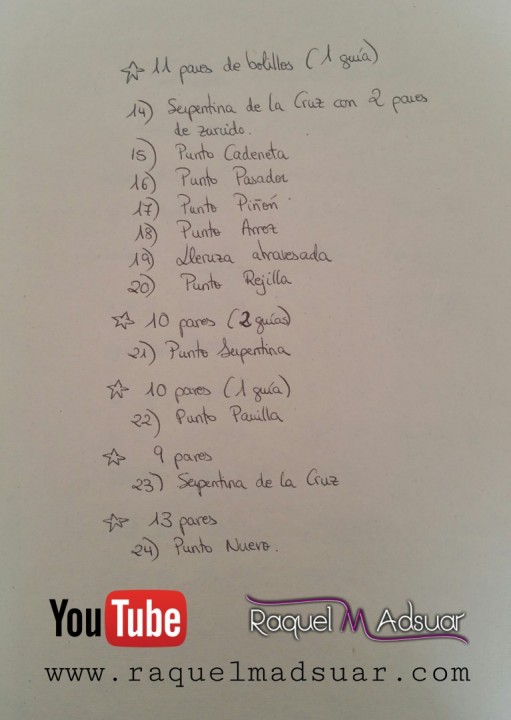 ☆ 11 pares de bolillos (1 guía)
14) Serpentina de la Cruz con 2 pares
de zurcido.
15) Punto Cadeneta
16) Punto Pasador
17) Punto Piñón
18) Punto Arroz
19) Lleruza atravesada
20) Punto Rejilla
☆ 10 pares (2 guías)
21) Punto Serpentina
☆ 10 pares (1 guía)
22) Punto Parrilla
☆ 9 pares
23) Serpentina de la Cruz
☆ 13 pares
24) Punto Nuevo.
YouTube
Raquel M Adsuar
www.raquelmadsuar.com